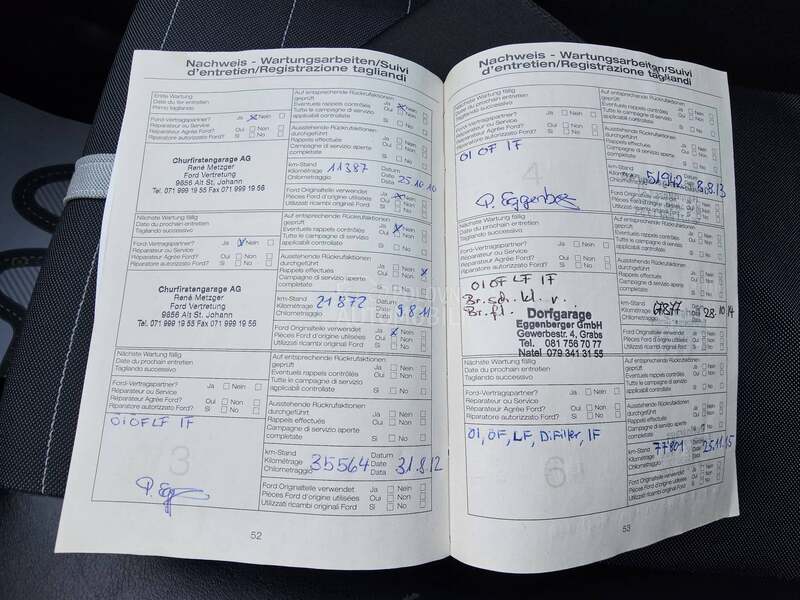 Nachweis - Wartungsarbeiten/Suivi
d'entretien/Registrazione tagliandi
Erste Wartung
Date du 1er entretien
Primo tagliando
Ford-Vertragspartner? Ja Nein
Réparateur ou Service
Réparateur Agrée Ford? Oui Non
Riparatore autorizzato Ford? Si No
Churfirstengarage AG
René Metzger
Ford Vertretung
9656 Alt St. Johann
Tel. 071 999 19 55 Fax 071 999 19 56
Auf entsprechende Rückrufaktionen
geprüft Ja Nein
Eventuels rappels contrôlés Oui Non
Tutte le campagne di servizio
applicabili controllate Si No
Ausstehende Rückrufaktionen
durchgeführt Ja Nein
Rappels effectués Oui Non
Campagne di servizio aperte
completate Si No
km-Stand Datum
Kilométrage 11387 Date
Chilometraggio Data 25.10.10
Ford Originalteile verwendet Ja Nein
Pièces Ford d'origine utilisées Oui Non
Utilizzati ricambi original Ford Si No
Nächste Wartung fällig
Date du prochain entretien
Tagliando successivo
Ford-Vertragspartner? Ja Nein
Réparateur ou Service
Réparateur Agrée Ford? Oui Non
Riparatore autorizzato Ford? Si No
Churfirstengarage AG
René Metzger
Ford Vertretung
9656 Alt St. Johann
Tel. 071 999 19 55 Fax 071 999 19 56
Auf entsprechende Rückrufaktionen
geprüft Ja Nein
Eventuels rappels contrôlés Oui Non
Tutte le campagne di servizio
applicabili controllate Si No
Ausstehende Rückrufaktionen
durchgeführt Ja Nein
Rappels effectués Oui Non
Campagne di servizio aperte
completate Si No
km-Stand Datum
Kilométrage 21872 Date 9.8.11
Chilometraggio Data
Ford Originalteile verwendet Ja Nein
Pièces Ford d'origine utilisées Oui Non
Utilizzati ricambi original Ford Si No
Nächste Wartung fällig
Date du prochain entretien
Tagliando successivo
Ford-Vertragspartner? Ja Nein
Réparateur ou Service
Réparateur Agrée Ford? Oui Non
Riparatore autorizzato Ford? Si No
Öl ÖF LF IF
3
Auf entsprechende Rückrufaktionen
geprüft Ja Nein
Eventuels rappels contrôlés Oui Non
Tutte le campagne di servizio
applicabili controllate Si No
Ausstehende Rückrufaktionen
durchgeführt Ja Nein
Rappels effectués Oui Non
Campagne di servizio aperte
completate Si No
km-Stand Datum
Kilométrage 35564 Date 31.8.12
Chilometraggio Data
Ford Originalteile verwendet Ja Nein
Pièces Ford d'origine utilisées Oui Non
Utilizzati ricambi original Ford Si No
52
Nachweis - Wartungsarbeiten/Suivi
d'entretien/Registrazione tagliandi
Nächste Wartung fällig
Date du prochain entretien
Tagliando successivo
Ford-Vertragspartner? Ja Nein
Réparateur ou Service
Réparateur Agrée Ford? Oui Non
Riparatore autorizzato Ford? Si No
Öl ÖF IF
4
P. Eggenber
Auf entsprechende Rückrufaktionen
geprüft Ja Nein
Eventuels rappels contrôlés Oui Non
Tutte le campagne di servizio
applicabili controllate Si No
Ausstehende Rückrufaktionen
durchgeführt Ja Nein
Rappels effectués Oui Non
Campagne di servizio aperte
completate Si No
km-Stand Datum
51942 8.8.13
Ford Originalteile verwendet Ja Nein
Pièces Ford d'origine utilisées Oui Non
Utilizzati ricambi original Ford Si No
Nächste Wartung fällig
Date du prochain entretien
Tagliando successivo
Ford-Vertragspartner? Ja Nein
Réparateur ou Service
Réparateur Agrée Ford? Oui Non
Riparatore autorizzato Ford? Si No
Öl ÖF LF IF
Br.sch. kl. v.
Br.fl.
Dorfgarage
Eggenberger GmbH
Gewerbestr. 4, Grabs
Tel. 081 756 70 77
Natel 079 341 31 55
Auf entsprechende Rückrufaktionen
geprüft Ja Nein
Eventuels rappels contrôlés Oui Non
Tutte le campagne di servizio
applicabili controllate Si No
Ausstehende Rückrufaktionen
durchgeführt Ja Nein
Rappels effectués Oui Non
Campagne di servizio aperte
completate Si No
km-Stand Datum
Chilometraggio Data
Ford Originalteile verwendet Ja Nein
Pièces Ford d'origine utilisées Oui Non
Utilizzati ricambi original Ford Si No
Nächste Wartung fällig
Date du prochain entretien
Tagliando successivo
Ford-Vertragspartner? Ja Nein
Réparateur ou Service
Réparateur Agrée Ford? Oui Non
Riparatore autorizzato Ford? Si No
Öl, ÖF, LF, Di Filter, IF
6
Auf entsprechende Rückrufaktionen
geprüft Ja Nein
Eventuels rappels contrôlés Oui Non
Tutte le campagne di servizio
applicabili controllate Si No
Ausstehende Rückrufaktionen
durchgeführt Ja Nein
Rappels effectués Oui Non
Campagne di servizio aperte
completate Si No
km-Stand Datum
Kilométrage 77801 Date 23.11.15
Chilometraggio Data
Ford Originalteile verwendet Ja Nein
Pièces Ford d'origine utilisées Oui Non
Utilizzati ricambi original Ford Si No
53